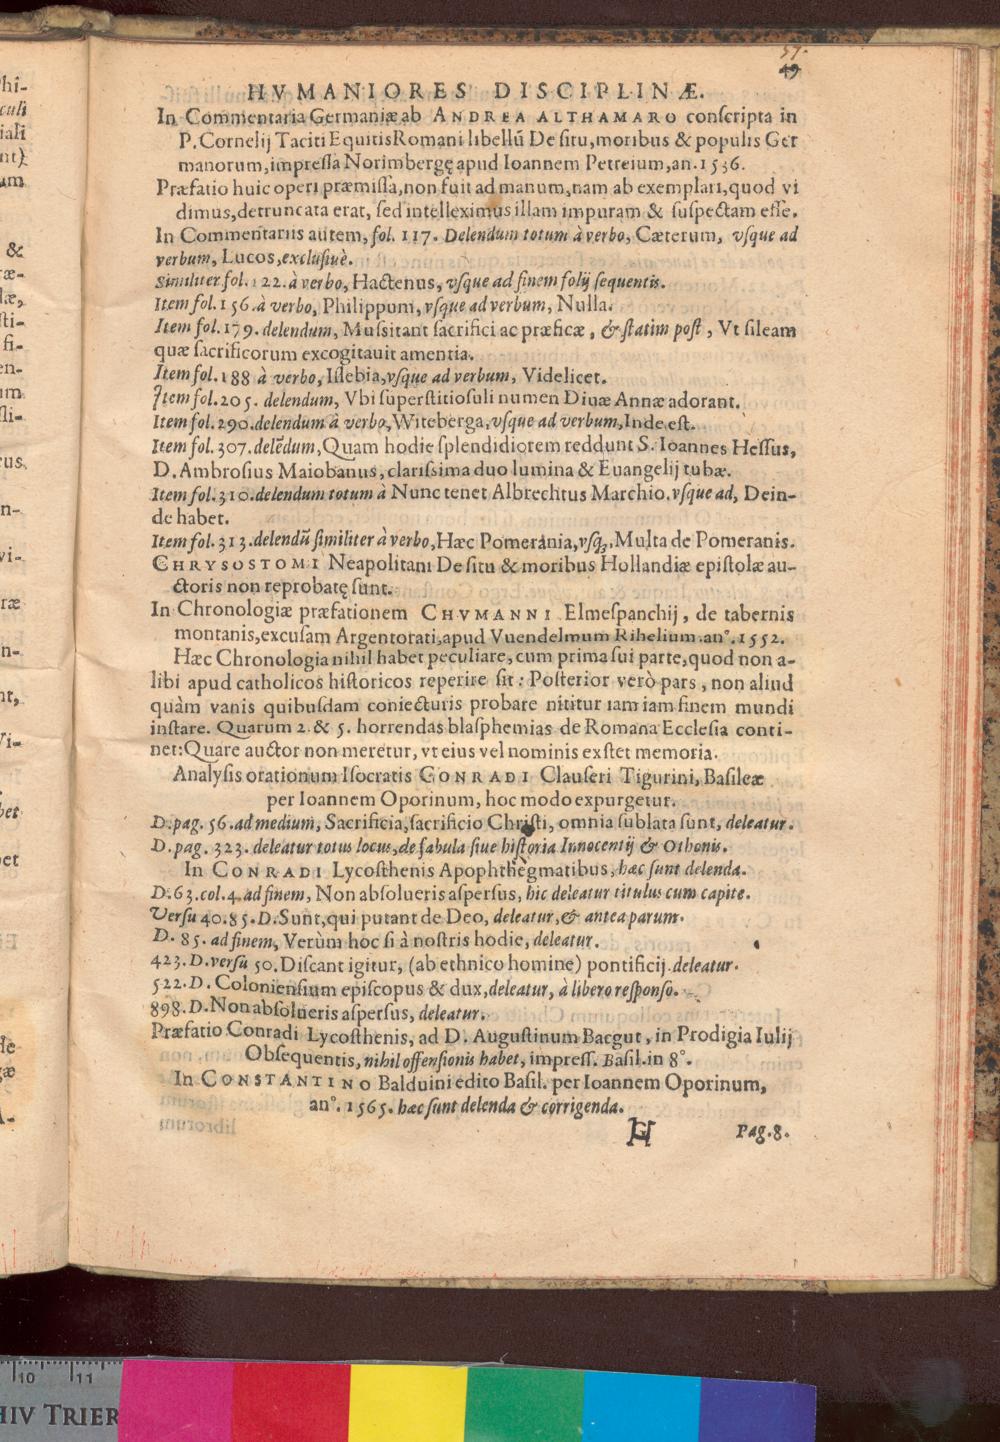 57.
49
HVMANIORES DISCIPLINÆ.
In Commentaria Germaniæ ab ANDREA ALTHAMARO conſcripta in
P. Cornelij Taciti Equitis Romani libellũ De ſitu, moribus & populis Ger
manorum, impreſſa Norimbergę apud Ioannem Petreium, an. 1536.
Præfatio huic operi præmiſſa, non fuit ad manum, nam ab exemplari, quod vi
dimus, detruncata erat, ſed intelleximus illam impuram & ſuſpectam eſſe.
In Commentariis autem, fol. 117. Delendum totum à verbo, Cæterum, vſque ad
verbum, Lucos, excluſiuè.
Similiter fol. 122. à verbo, Hactenus, vſque ad finem folij ſequentis.
Item fol. 156. à verbo, Philippum, vſque ad verbum, Nulla.
Item fol. 179. delendum, Muſsitant ſacrifici ac præficæ, & ſtatim poſt, Vt ſileam
quæ ſacrificorum excogitauit amentia.
Item fol. 188 à verbo, Iſlebia, vſque ad verbum, Videlicet.
Item fol. 205. delendum, Vbi ſuperſtitioſuli numen Diuæ Annæ adorant.
Item fol. 290. delendum à verbo, Witeberga, vſque ad verbum, Inde eſt.
Item fol. 307. delẽdum, Quam hodie ſplendidiorem reddunt S. Ioannes Heſſus,
D. Ambroſius Maiobanus, clariſsima duo lumina & Euangelij tubæ.
Item fol. 310. delendum totum à Nunc tenet Albrechtus Marchio, vſque ad, Dein-
de habet.
Item fol. 313. delendũ ſimiliter à verbo, Hæc Pomerania, vſq;, Multa de Pomeranis.
CHRYSOSTOMI Neapolitani De ſitu & moribus Hollandiæ epiſtolæ au-
ctoris non reprobatę ſunt.
In Chronologiæ præfationem CHVMANNI Elmeſpanchij, de tabernis
montanis, excuſam Argentorati, apud Vuendelmum Rihelium. anº. 1552.
Hæc Chronologia nihil habet peculiare, cum prima ſui parte, quod non a-
libi apud catholicos hiſtoricos reperire ſit: Poſterior verò pars, non aliud
quàm vanis quibuſdam coniecturis probare nititur iam iam finem mundi
inſtare. Quarum 2. & 5. horrendas blaſphemias de Romana Eccleſia conti-
net: Quare auctor non meretur, vt eius vel nominis exſtet memoria.
Analyſis orationum Iſocratis CONRADI Clauſeri Tigurini, Baſileæ
per Ioannem Oporinum, hoc modo expurgetur.
D. pag. 56. ad medium, Sacrificia, ſacrificio Chriſti, omnia ſublata ſunt, deleatur.
D. pag. 323. deleatur totus locus, de fabula ſiue hiſtoria Innocentij & Othonis.
In CONRADI Lycoſthenis Apophthegmatibus, hæc ſunt delenda.
D. 63. col. 4. ad finem, Non abſolueris aſperſus, hic deleatur titulus cum capite.
Verſu 40. 85. D. Sunt, qui putant de Deo, deleatur, & antea parum.
D. 85. ad finem, Verùm hoc ſi à noſtris hodie, deleatur.
423. D. verſu 50. Diſcant igitur, (ab ethnico homine) pontificij. deleatur.
522. D. Colonienſium epiſcopus & dux, deleatur, à libero reſponſo.
898. D. Non abſolueris aſperſus, deleatur.
Præfatio Conradi Lycoſthenis, ad D. Auguſtinum Baegut, in Prodigia Iulij
Obſequentis, nihil offenſionis habet, impreſſ. Baſil. in 8º.
In CONSTANTINO Balduini edito Baſil. per Ioannem Oporinum,
anº. 1565. hæc ſunt delenda & corrigenda.
H
Pag. 8.
hi-
culi
iali
nt)
um
&
ræ-
læ,
ſti-
fi-
en-
um
ſli-
cus,
n-
vi-
ræ
n-
nt,
Vi-
bet
et
de
gæ
A-
10 11
HIV TRIER